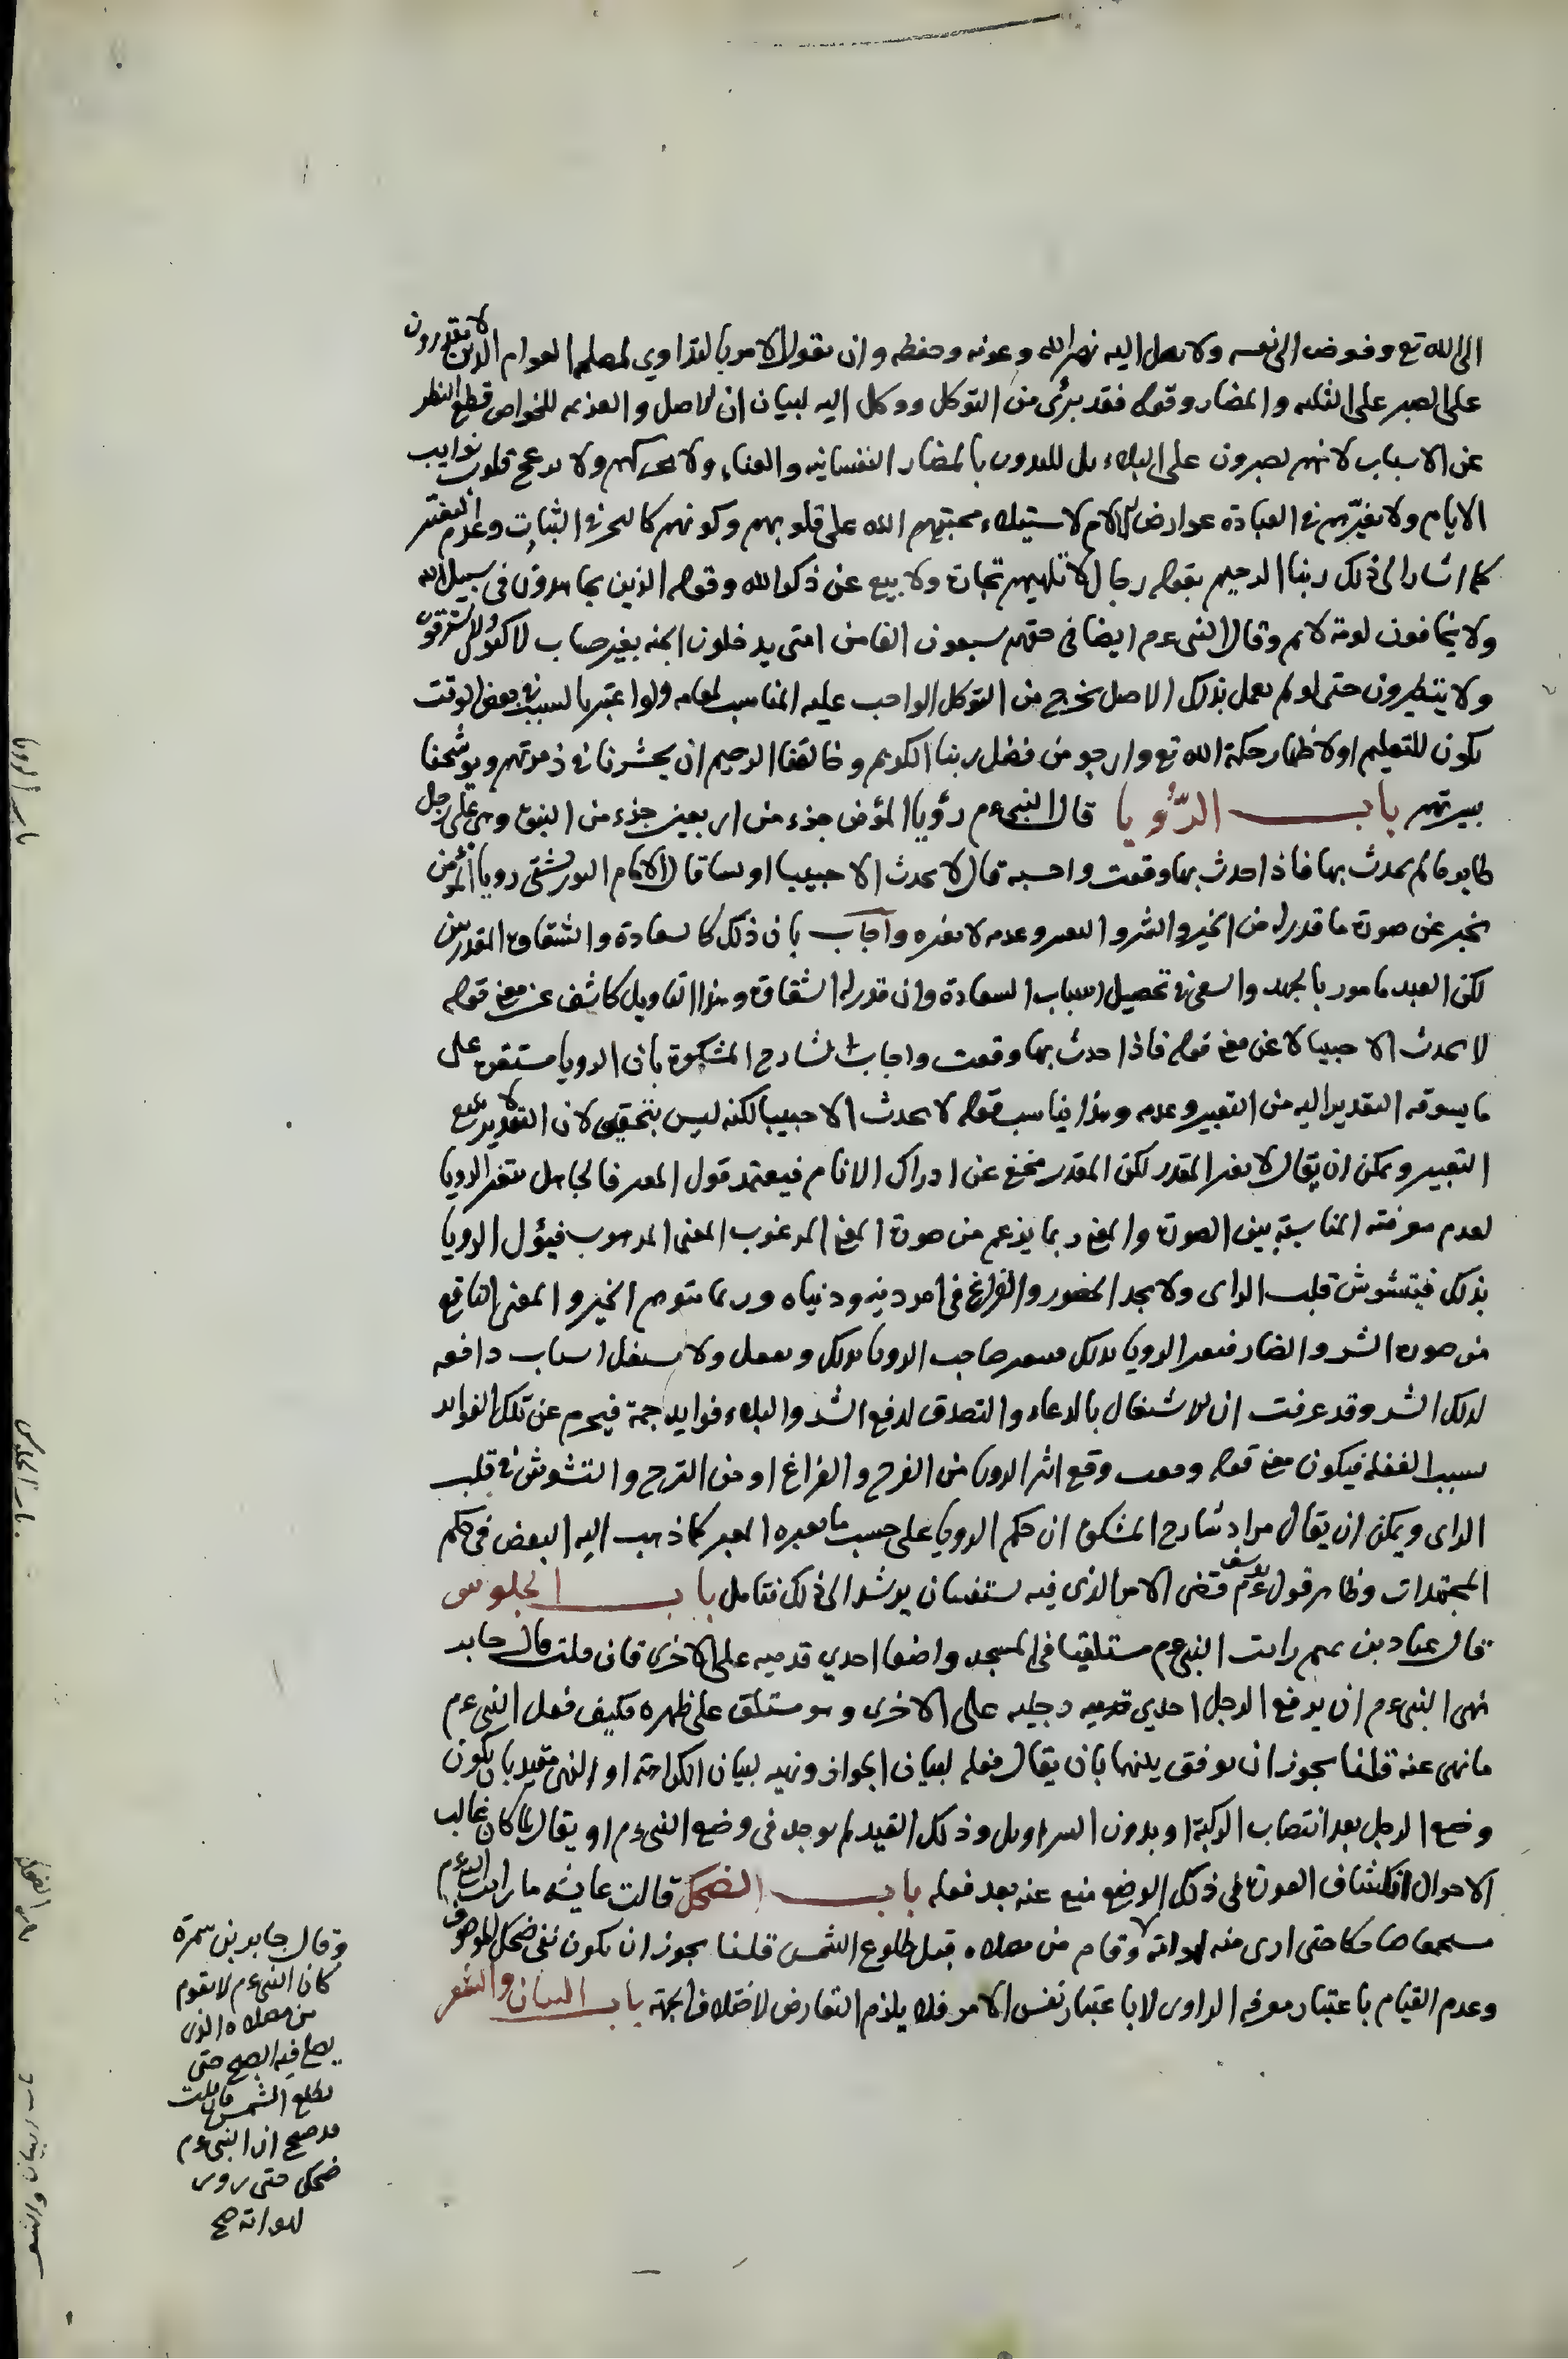 الى الله تع وفوض الى نفسه ولا يصل اليه نصر الله وعونه وحفظه وان يقول الامر بالتداوي لمصلحة العوام الذين لا يقدرون
على الصبر على النكبة والمضار وقوله فقد برئ من التوكل ووكل اليه لبيان ان الاصل والعزيمة للخواص قطع النظر
عن الاسباب لانهم يصبرون على البلاء بل بالمضار النفسانية والفناء ولا ولا يزعج قلوبهم نوايب
الايام ولا يغيّرهم في العبادة عوارض الآلام لاستيلاء محبتهم الله على قلوبهم وكونهم كالبحر في الثبات وعدم التغير
كما اشار الى ذلك ربنا الرحيم بقوله رجال لا تلهيهم تجارة ولا بيع عن ذكر الله وقوله الذين يجاهدون في سبيل الله
ولا يخافون لومة لائم وقال النبي عم ايضا في حقهم سبعون الفا من امتي يدخلون الجنة بغير حساب لا يكتوون ولا يسترقون
ولا يتطيرون حتى لو لم يعمل بذلك الاصل يخرج من التوكل الواجب عليه المناسب لمقامه ولو اعتبر بالسبب في بعض الوقت
يكون للتعليم او لاظهار حكمة الله تع وارجو من فضل ربنا الكريم وخالقنا الرحيم ان يحشرنا في زمرتهم ويوشحنا
بسيرتهم باب الرّؤيا قال النبي عم رؤيا المؤمن جزء من اربعين جزء من النبوة وهي على رجل
طاير ما لم يحدث بها فاذا حدث بها وقعت واحسبه قال لا يحدث الا حبيبا او لبيبا قال الامام التوربشتي رويا المؤمن
يخبر عن صورة ما قدر له من الخير والشر والتعبير وعدمه لا يغيره واجاب بان ذلك كالسعادة والشقاوة المقدرتين
لكن العبد مامور بالجهد والسعي في تحصيل اسباب السعادة وان قدر له الشقاوة وهذا التاويل كاشف عن معنى قوله
لا يحدث الا حبيبا لا عن معنى قوله فاذا حدث بها وقعت واجاب شارح المشكوة بان الرويا مستقرة على
ما يسوقه التقدير اليه من التعبير وعدمه وهذا يناسب قوله لا يحدث الا حبيبا لكنه ليس بتحقيق لان التقدير لا يمنع
التعبير ويمكن ان يقال لا يغير المقدر لكن المقدر مخفي عن ادراك الانام فيعتمد قول المعبر فالجاهل يعبر الرويا
لعدم معرفته المناسبة بين الصورة والمعنى ربما يزعم من صورة المعنى المرغوب المعنى المرهوب فيؤل الرويا
بذلك فيتشوش قلب الراى ولا يجد الحضور والفراغ في امر دينه ودنياه وربما يتوهم الخير والمعنى النافع
من صورة الشر والضار فيعبر الرويا بذلك صاحب الرويا بذلك ويغفل ولا يستغل اسباب دافعة
لذلك الشر وقد عرفت ان الاشتغال بالدعاء والتصدق لدفع الشر والبلاء فوايد جمة فيحرم عن تلك الفوايد
بسبب الغفلة فيكون معنى قوله وقعت وقع اثر الرويا من الفرح والفراغ او من الترح والتشوش في قلب
الراى ويمكن ان يقال مراد شارح المشكوة ان حكم الرويا على حسب ما يعبره المعبر كما ذهب اليه البعض في حكم
المجتهدات وظاهر قول يوسف عم قضى الامر الذي فيه تستفتيان يرشد الى ذلك فتامل باب الجلوس
قال عباد بن تميم رايت النبي عم مستلقيا في المسجد واضعا احدي قدميه على الاخرى فان قلت قال جابر
نهى النبي عم ان يرفع الرجل احدي رجليه على الاخرى وهو مستلق على ظهره فكيف فعل النبي عم
ما نهى عنه قلنا يجوز ان يوفق بينهما بان يقال فعله لبيان الجواز ونهيه لبيان الكراهة او النهي مقيد بان يكون
وضع الرجل بعد انتصاب الركبة او بدون السراويل وذلك القيد لم يوجد في وضع النبي عم او يقال لما كان غالب
الاحوال انكشاف العورة في ذلك الوضع منع عنه بعد فعله باب الضحك قالت عايشة ما رايت النبي عم
مستجمعا ضاحكا حتى ارى منه لهواته ولا قام من مصلاه قبل طلوع الشمس قلنا يجوز ان يكون نفي ضحك الموصوف
وعدم القيام باعتبار معرفة الراوى لا باعتبار نفس الامر فلا يلزم التعارض لاختلاف الجهة باب البيان والشعر
وقال جابر بن سمرة
كان النبي عم لا يقوم
من مصلاه الذي
يصلي فيه الصبح حتى
يطلع الشمس فان قلت
قد صح ان النبي عم
ضحك حتى
لهواته صح
باب الرويا
باب الجلوس
باب الضحك
والشعر